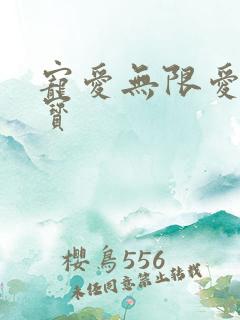 寵愛無限愛
寶
櫻鳥556
未经同意禁止转载